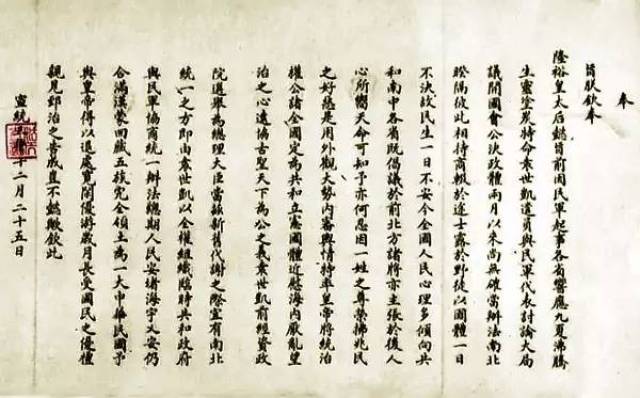 奉
旨朕欽奉
隆裕皇太后懿旨前因民軍起事各省響應九夏沸騰
生靈塗炭特命袁世凱遣員與民軍代表討論大局
議開國會公決政體兩月以來尚無確當辦法南北
睽隔彼此相持商輟於途士露於野徒以國體一日
不決故民生一日不安今全國人民心理多傾向共
和南中各省既倡議於前北方諸將亦主張於後人
心所嚮天命可知予亦何忍因一姓之尊榮拂兆民
之好惡是用外觀大勢內審輿情特率皇帝將統治
權公諸全國定為共和立憲國體近慰海內厭亂望
治之心遠協古聖天下為公之義袁世凱前經資政
院選舉為總理大臣當茲新舊代謝之際宜有南北
統一之方即由袁世凱以全權組織臨時共和政府
與民軍協商統一辦法總期人民安堵海宇乂安仍
合滿漢蒙回藏五族完全領土為一大中華民國予
與皇帝得以退處寬閒優游歲月長受國民之優禮
親見郅治之告成豈不懿歟欽此
宣統三年十二月二十五日